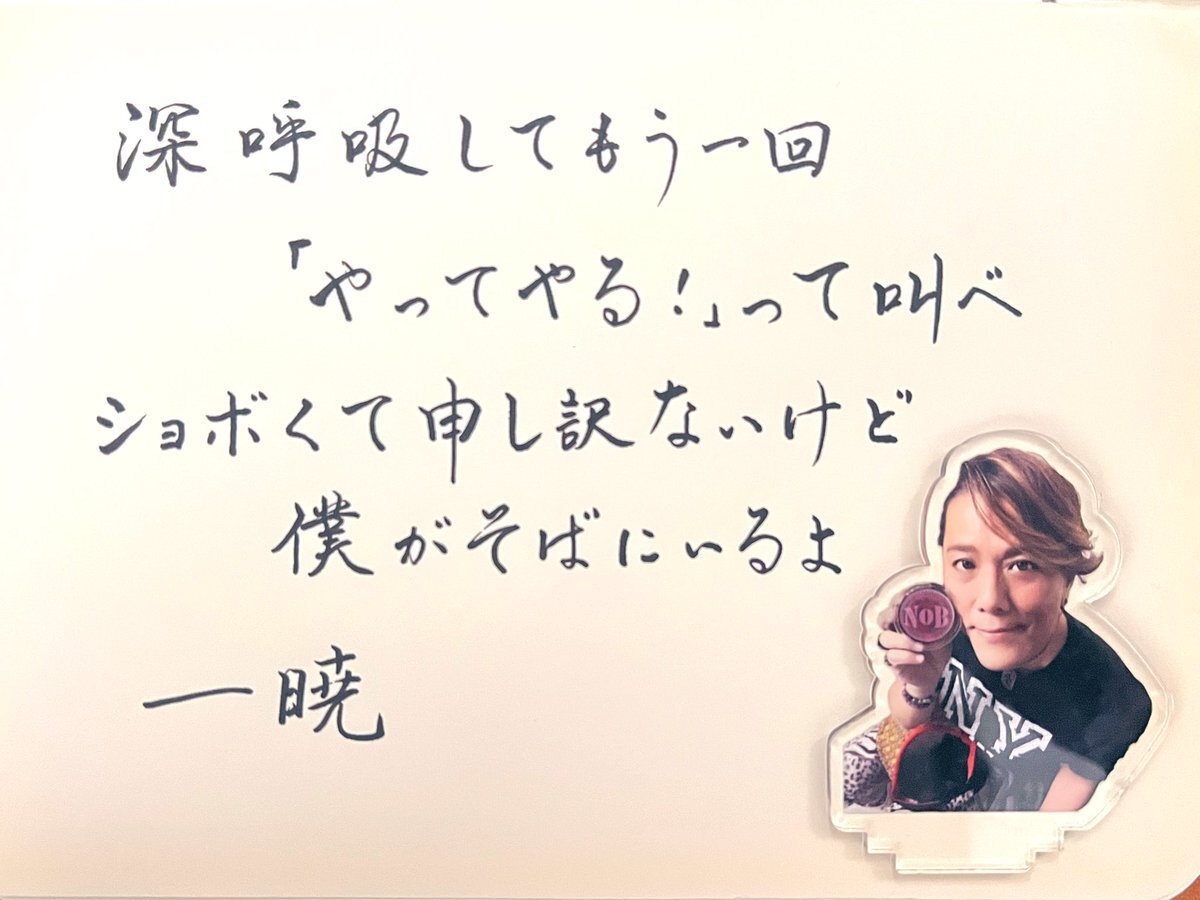 深呼吸してもう一回
「やってやる!」って叫べ
ショボくて申し訳ないけど
僕がそばにいるよ
一暁
NoB
NY